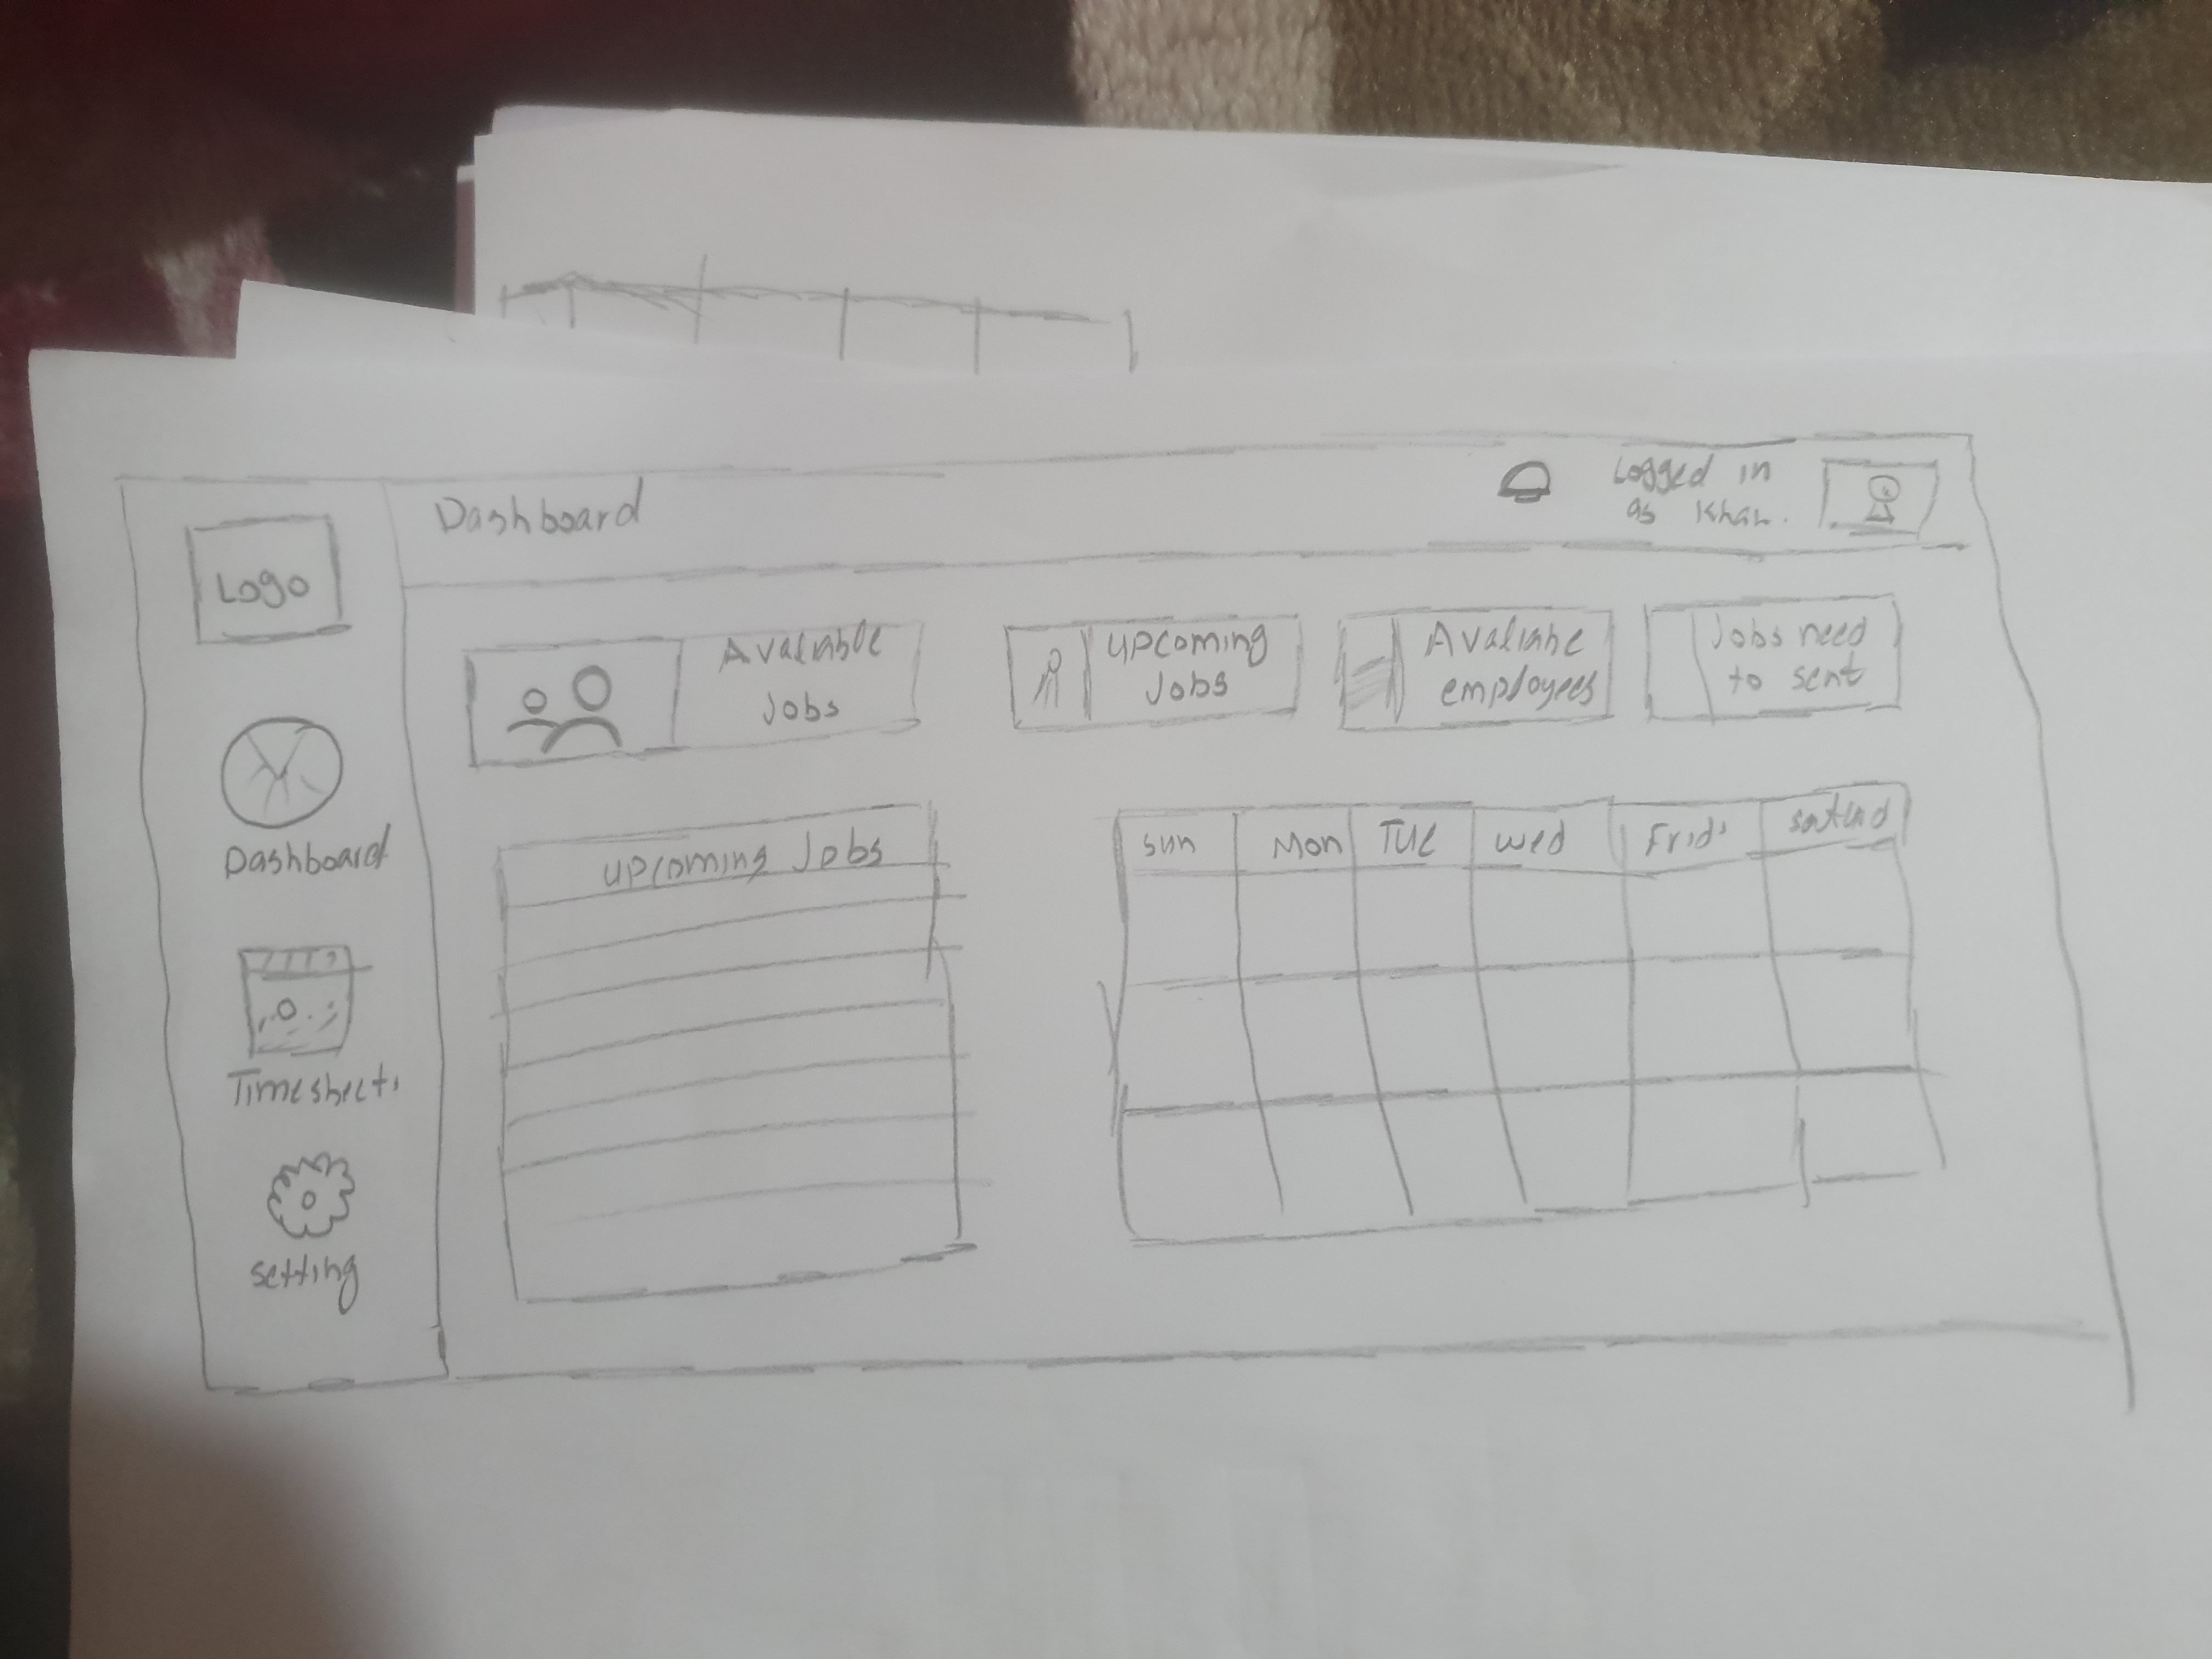 Logo
Dashboard
Timesheets
setting
Dashboard
Logged in
as Khan.
Available
Jobs
upcoming
Jobs
Avaliable
employees
Jobs need
to sent
upcoming Jobs
sun Mon TUE wed Frid